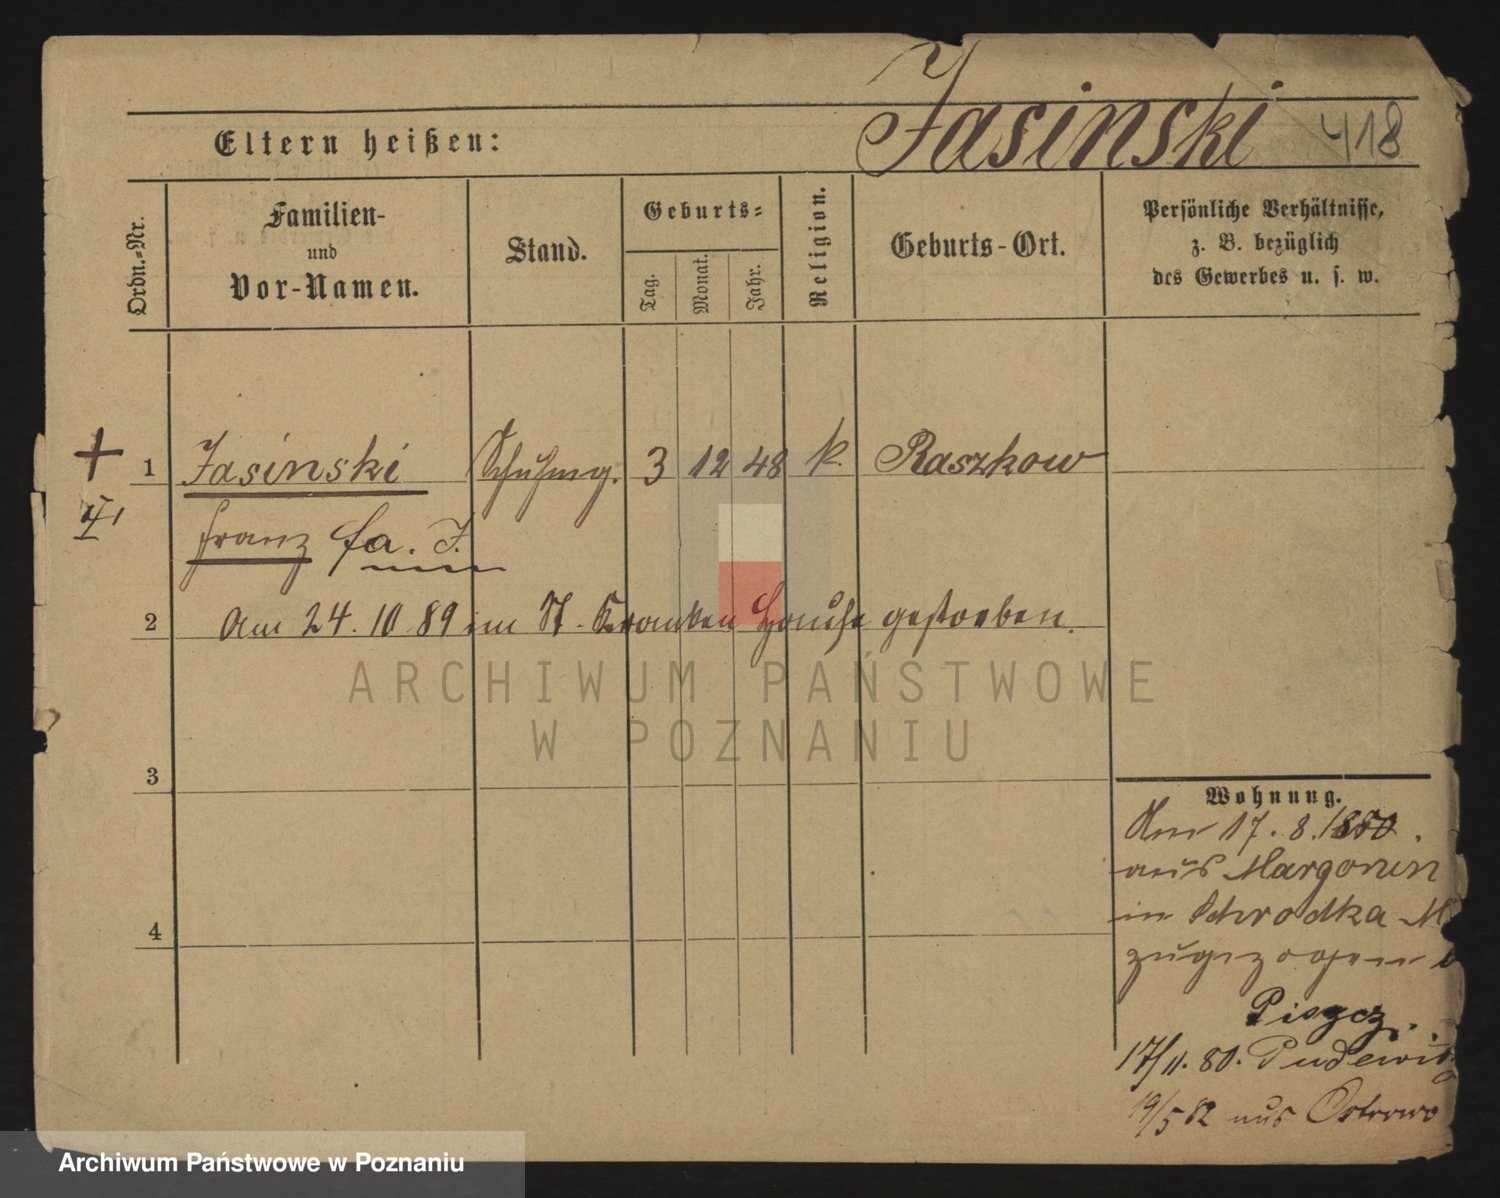 Jasinski 418
Eltern heißen:
Ordn.-Nr.
Familien-
und
Vor-Namen.
Stand.
Geburts-
Tag.
Monat.
Jahr.
Religion.
Geburts-Ort.
Persönliche Verhältnisse,
z. B. bezüglich
des Gewerbes u. s. w.
1 Jasinski Schuhmg. 3 12 48 k. Raszkow
Franz fa. J.
2 Am 24. 10 89 im St. Kranken Hause gestorben.
ARCHIWUM PAŃSTWOWE
W POZNANIU
3
4
Wohnung.
Am 17. 8. 1880.
aus Margonin
in Schrodka
zugezogen
17/11. 80. Pudewitz
19/5 82 aus Ostrowo
Archiwum Państwowe w Poznaniu